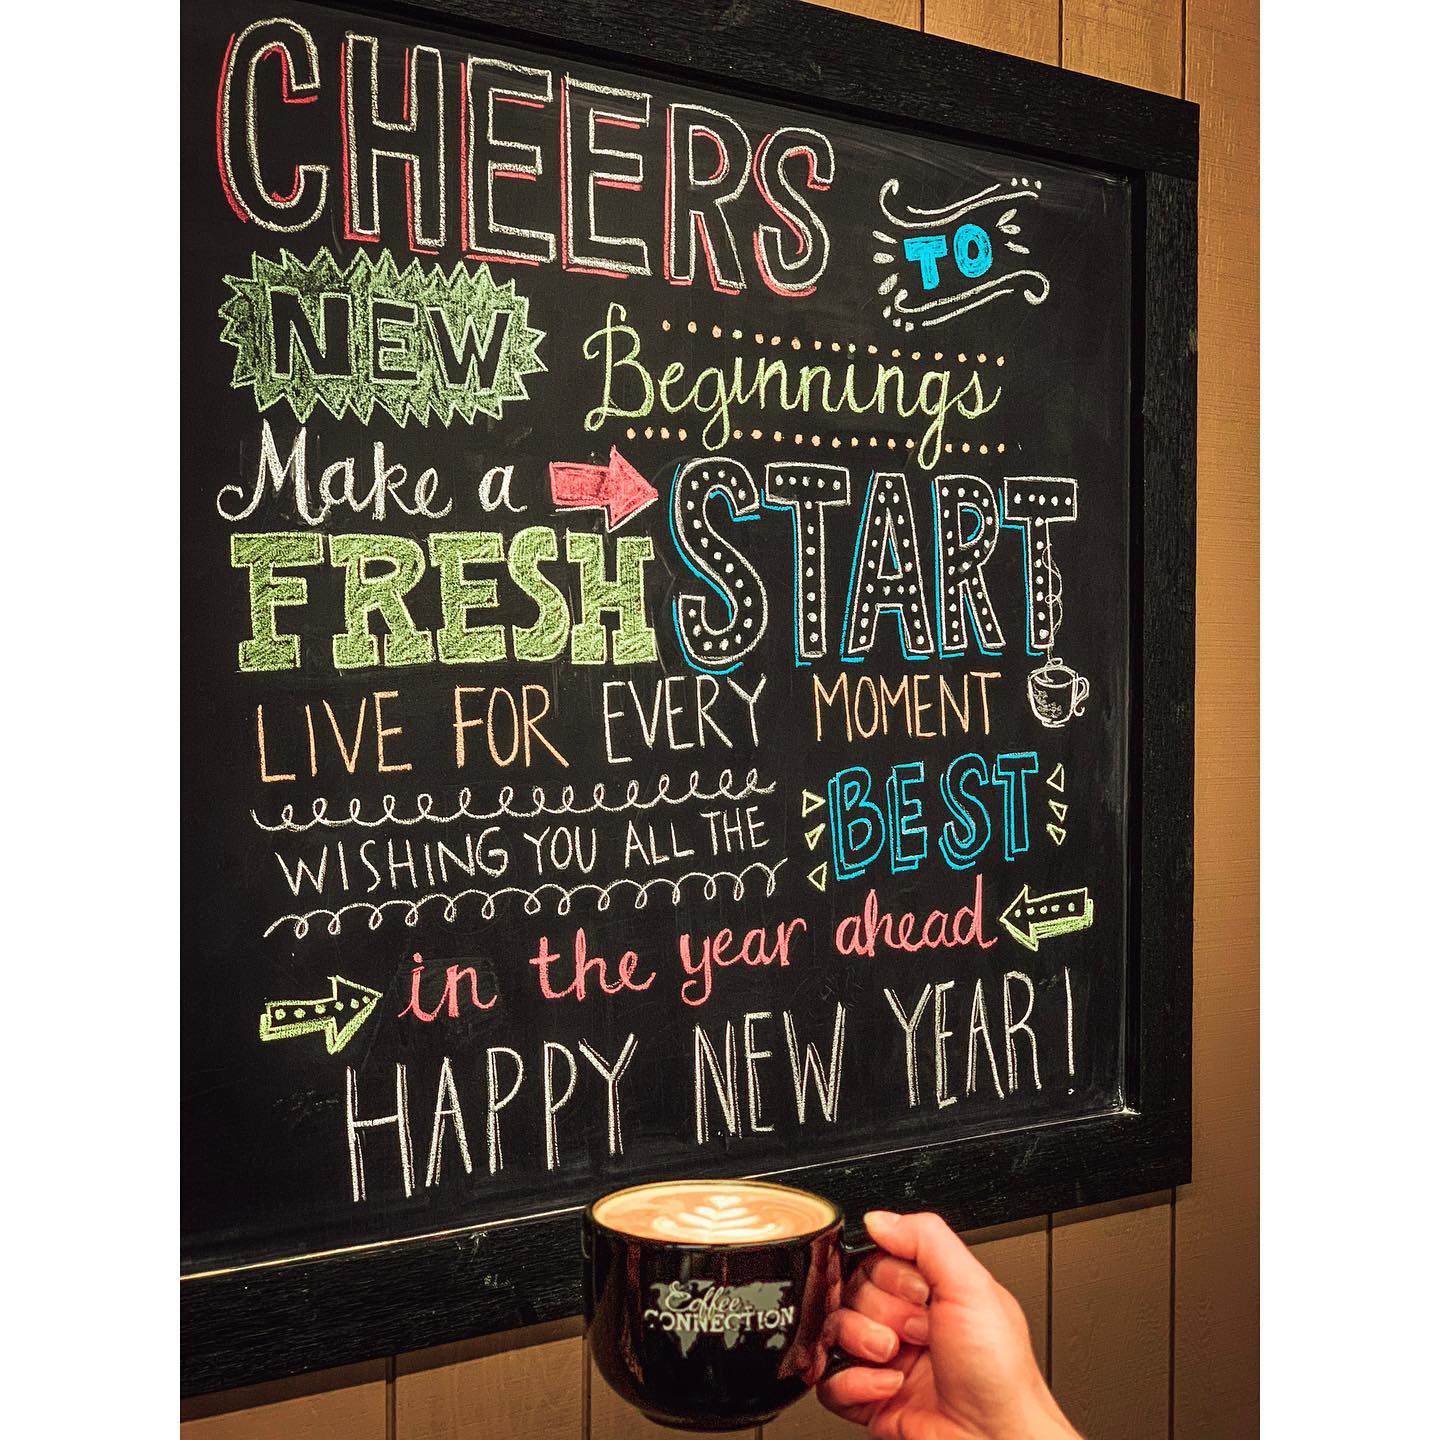 CHEERS TO
NEW Beginnings
Make a START
FRESH
LIVE FOR EVERY MOMENT
WISHING YOU ALL THE BEST
in the year ahead
HAPPY NEW YEAR!
Coffee
CONNECTION